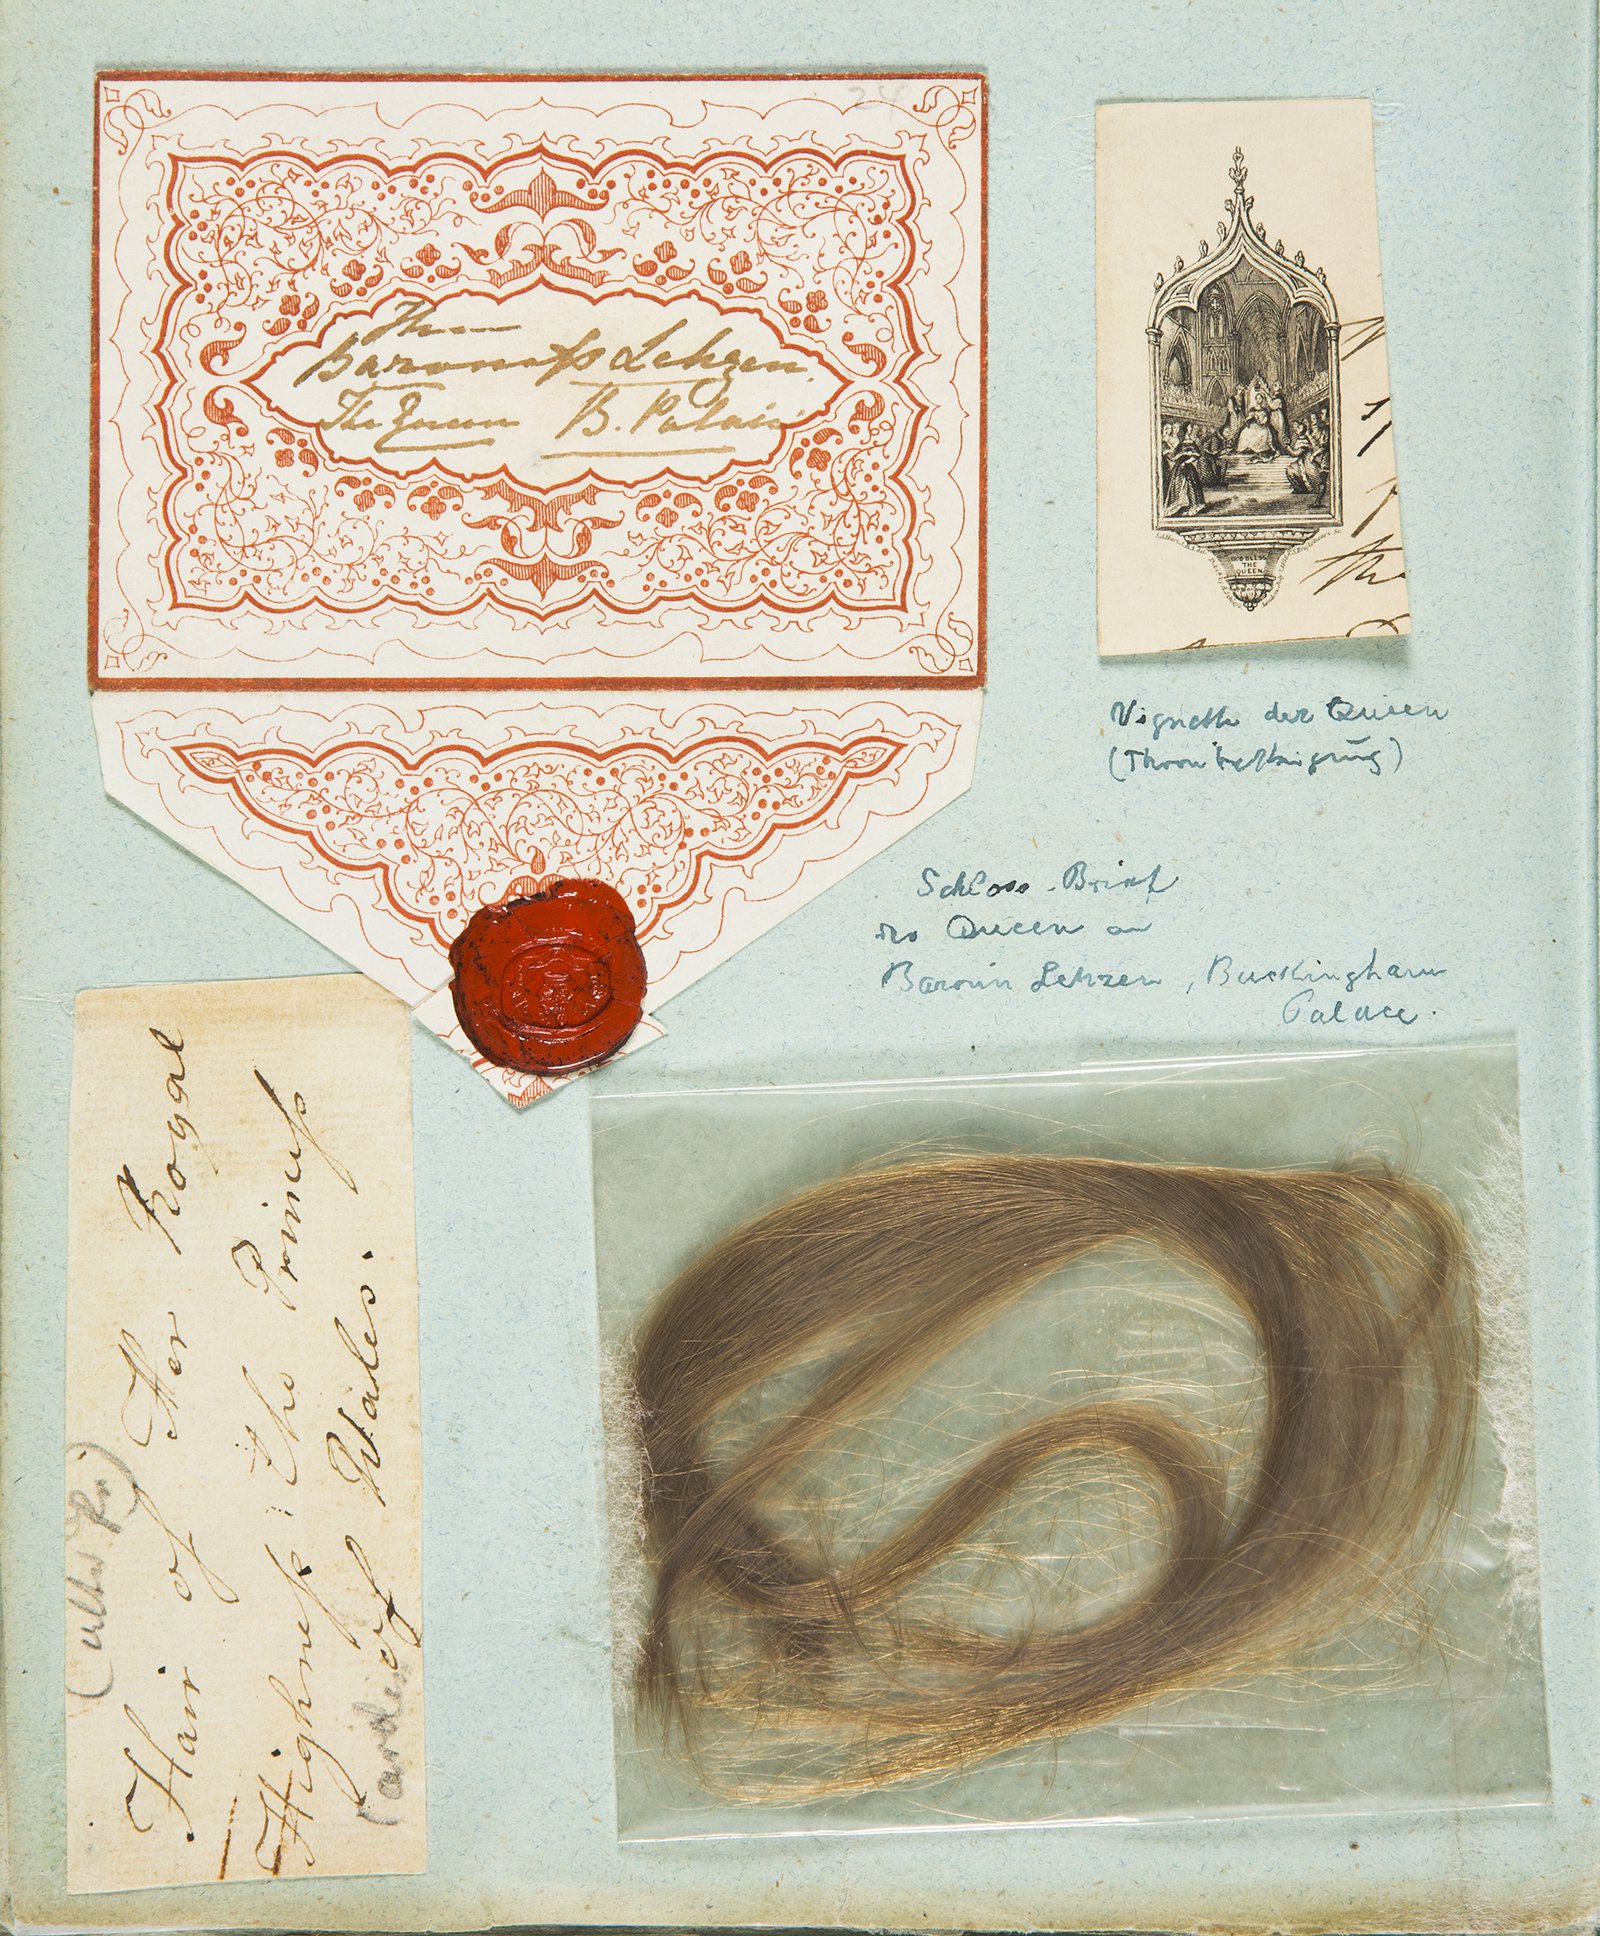 24
The
Baroness Lehzen.
The Queen B. Palace
GOD BLESS
THE
QUEEN
the
Vignette der Queen
(Thronbesteigung)
Schloss-Brief
der Queen an
Baronin Lehzen, Buckingham
Palace.
Hair of Her Royal
Highness the Princess
of Wales.